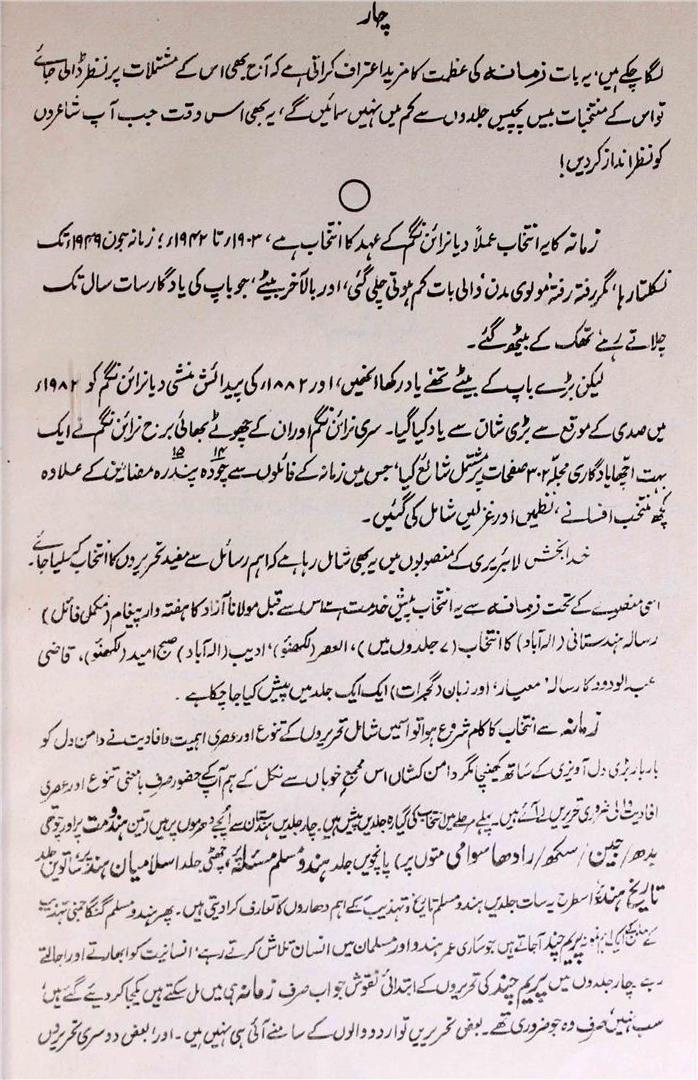 چار
لگا چکے ہیں، یہ بات زمانہ کی عظمت کا مزید اعتراف کراتی ہے کہ آج بھی اس کے مشتملات پر نظر ڈالی جائے
تو اس کے منتخبات بیس پچیس جلدوں سے کم میں نہیں سمائیں گے، یہ بھی اس وقت جب آپ شاعروں
کو نظر انداز کردیں!
زمانہ کا یہ انتخاب عملاً دیا نرائن نگم کے عہد کا انتخاب ہے، ۱۹۰۳ء تا ۱۹۴۲ء؛ زمانہ جون ۱۹۴۹ء تک
نکلتا رہا، مگر رفتہ رفتہ 'مولوی مدن' والی بات کم ہوتی چلی گئی، اور بالآخر بیٹے، جو باپ کی یادگار سات سال تک
چلاتے رہے، تھک کے بیٹھ گئے۔
لیکن بڑے باپ کے بیٹے تھے یاد رکھا انھیں، اور ۱۸۸۲ء کی پیدائش منشی دیا نرائن نگم کو ۱۹۸۲ء
میں صدی کے موقع سے بڑی شان سے یاد کیا گیا۔ سری نرائن نگم اور ان کے چھوٹے بھائی برج نرائن نگم نے ایک
بہت اچھا یادگاری مجلہ ۳۰۲ صفحات پر مشتمل شائع کیا، جس میں زمانہ کے فائلوں سے چودہ ۱۴ پندرہ ۱۵ مضامین کے علاوہ
کچھ منتخب افسانے، نظمیں اور غزلیں شامل کی گئیں۔
خدابخش لائبریری کے منصوبوں میں یہ بھی شامل رہا ہے کہ اہم رسائل سے مفید تحریروں کا انتخاب کر لیا جائے۔
اسی منصوبے کے تحت زمانہ سے یہ انتخاب پیش خدمت ہے اس سے قبل مولانا آزاد کا ہفتہ وار پیغام (مکمل فائل)
رسالہ ہندستانی (الہ آباد) کا انتخاب (۷ جلدوں میں)، العصر (لکھنؤ)، ادیب (الہ آباد) صبح امید (لکھنؤ)، قاضی
عبدالودود کا رسالہ 'معیار' اور زبان (گجرات) ایک ایک جلد میں پیش کیا جا چکا ہے۔
زمانہ سے انتخاب کا کام شروع ہوا تو اسمیں شامل تحریروں کے تنوع اور عصری اہمیت و افادیت نے دامن دل کو
بار بار بڑی دل آویزی کے ساتھ کھینچا مگر دامن کشاں اس مجمع خوباں سے نکل کے ہم آپ کے حضور صرف با معنی تنوع اور عصری
افادیت والی ضروری تحریریں لے آئے ہیں۔ پہلے مرحلے میں انتخاب کی گیارہ جلدیں پیش ہیں۔ چار جلدیں ہندستان سے اُپجے دھرموں پر ہیں (تین ہندومت پر اور چوتھی
بدھ/جین/سکھ/رادھا سوامی متوں پر) پانچویں جلد ہندو مسلم مسئلہ پر، چھٹی جلد اسلامیان ہند پر، ساتویں جلد
تاریخ ہند پر، اسطرح یہ سات جلدیں ہندو مسلم تاریخ و تہذیب کے اہم دھاروں کا تعارف کرا دیتی ہیں۔ پھر ہندو مسلم گنگا جمنی تہذیب
کے پریم چند آجاتے ہیں جو ساری عمر ہندو اور مسلمان میں انسان تلاش کرتے رہے، انسانیت کو ابھارتے اور اجالتے
رہے چار جلدوں میں پریم چند کی تحریروں کے ابتدائی نقوش جو اب صرف زمانہ ہی میں مل سکتے ہیں یکجا کر دیئے گئے ہیں،
سب نہیں، صرف وہ جو ضروری تھے۔ بعض تحریریں تو اردو والوں کے سامنے آئی ہی نہیں ہیں۔ اور بعض دوسری تحریروں